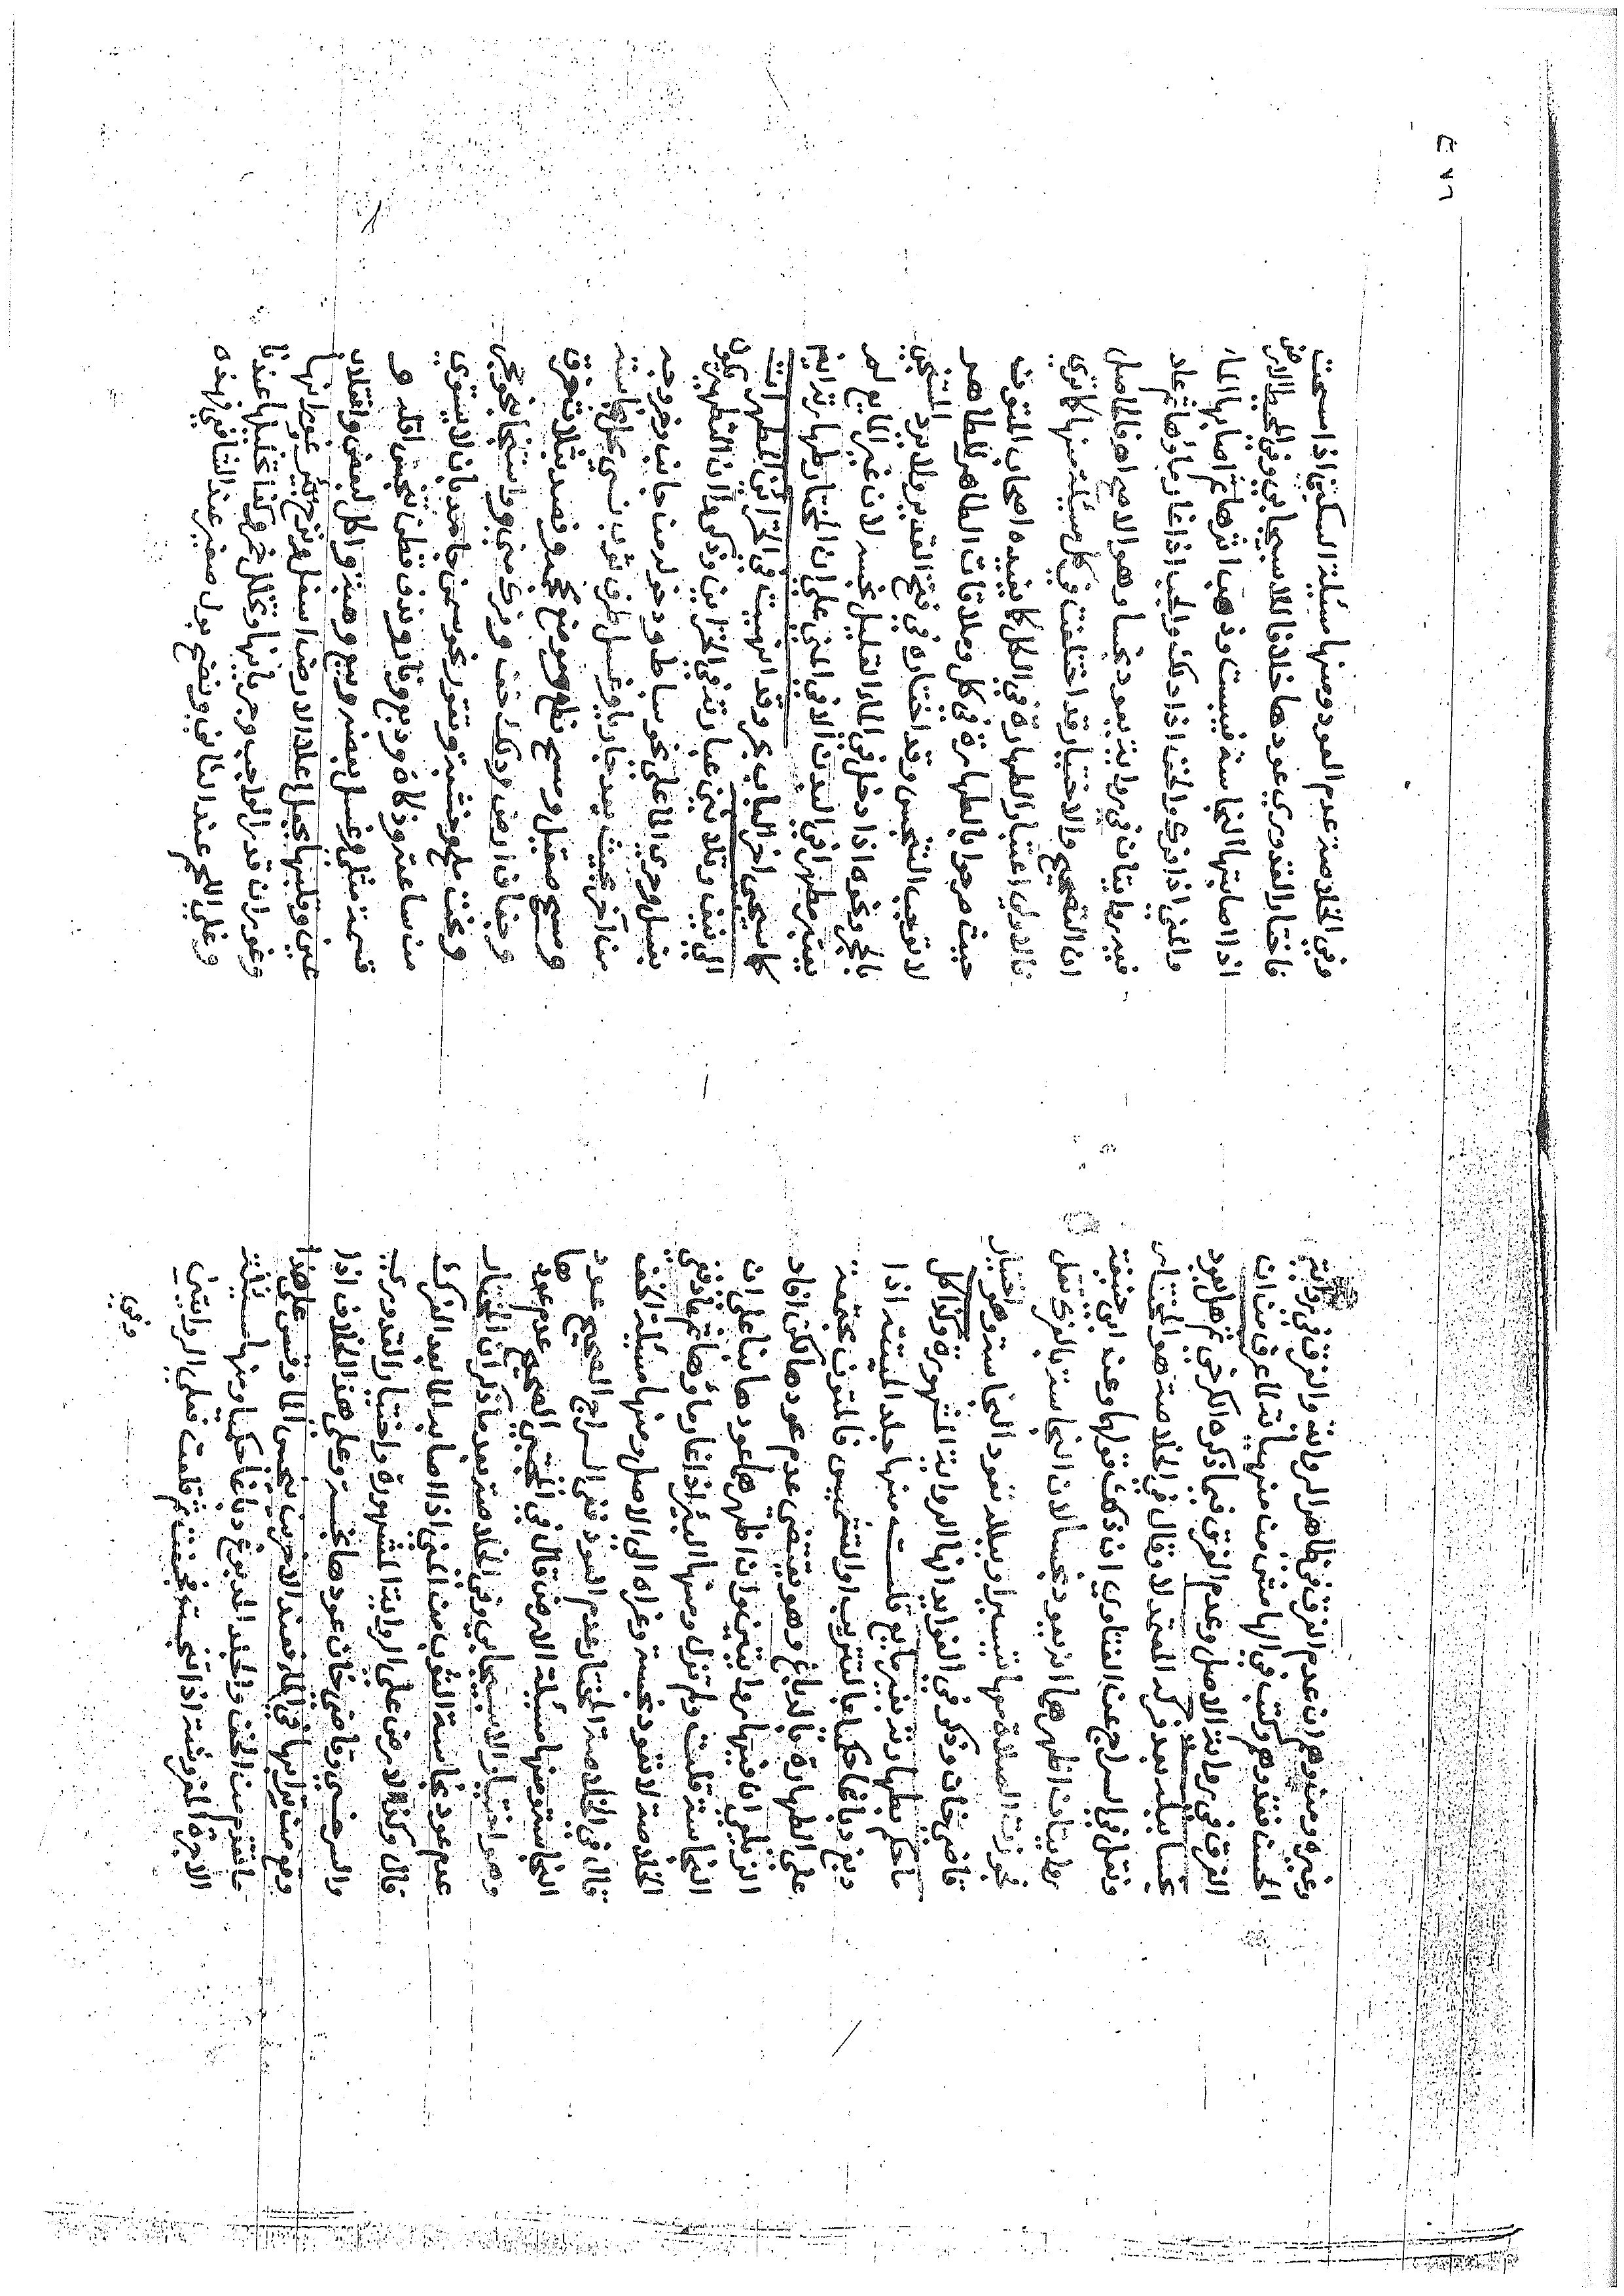 وغيره ومنه وهم ان عدم الفرق في ظاهر الرواية والفرق في رواية
الحسن فقد وهم وكتب في الهامش من منهياته
الفرق في رواية الاصل وعدم الفرق فيما ذكره الكرخي ثم هل يعود
نجسا ببله بعد فركه المعتمد لا وقال في الخلاصة هو المختار
ونقل في السراج عن الفتاوي ان قولها وعند ابي حنيفة
روايتان اظهرهما انه يعود نجسا لان النجاسة بالفرك تقل
فجوزت الصلاة معها تيسيرا وببله تعود النجاسة وهو اختيار
قاضي خان وذكر في الفوايد انها الرواية المشهورة وكذا كل
ما حكم بطهارته بغير مايع قلت منها جلد الميتة اذا
دبغ دباغا حكميا بالتتريب او التشميس فالمتون مجتمعة
على الطهارة بالدباغ وهو يقتضي عدم عودها لكن افاد
الزيلعي ان فيها روايتين وان اظهرهما عودها بناء على ان
النجاسة قلت ولم تزل ومنها البئر اذا غار ماؤها ثم عاد ففي
الخلاصة لا تعود نجسة وعزاه الى الاصل ومنها مسئلة الخف
قال في الخلاصة المختار عدم العود وفي السراج الصحيح عود
النجاسة ومنها مسئلة الارض قال في المجتبى الصحيح عدم عودها
وهو اختيار الاسبيجابي وفي الخلاصة بعد ما ذكر ان المختار
عدم عود نجاسة الثوب من المني اذا اصابه الماء بعد الفرك
قال وكذا الارض على الرواية المشهورة واختيار القدوري
والسرخسي وقاضي خان عودها نجسة وعلى هذا الخلاف اذا
وقع من ترابها في الماء فعند الاخرين ينجس الماء وقس على هذا
ما تقدم من الخف والجلد المدبوغ دباغا حكميا ومنها مسئلة
الاجرة المفروشة اذا تنجست فجفت ثم قلعت فعلى الروايتين
وفي
وفي الخلاصة عدم العود ومنها مسئلة السكين اذا مسحت
فاختار القدوري عودها خلافا للاسبيجابي وفي المحيط الارض
اذا اصابتها النجاسة فيبست وذهب اثرها ثم اصابها الماء
والمني اذا فرك والخف اذا دلك والجب اذا غار ماؤها ثم عاد
فيه روايتان في رواية يعود نجسا وهو الاصح اهـ فالحاصل
ان التصحيح والاختيار قد اختلفت في كل مسئلة منها كما ترى
فالاولى اعتبار الطهارة في الكل كما يفيده اصحاب المتون
حيث صرحوا بالطهارة في كل وملاقات الطاهر للطاهر
لا توجب التنجيس وقد اختاره في فتح القدير ولا يرد المستنجي
بالحجر ونحوه اذا دخل في الماء القليل نجسه لان غير المايع لم
يعتبر مطهرا في البدن الا في المني على ان المختار طهارته ايضا
كما سيجيء اخر الباب بحر وقد انهيت في الخزائن المطهرات
الى نيف وثلاثين عبارته في الخزاين وذكروا ان التطهير يكون
بغسل وجري الماء على نحو بساط ودخوله من جانب وخروجه
من آخر بحيث يعد جاريا وغسل طرف ثوب نسي محل نجاسته
ومسح صقيل ومسح نطع وموضع محجم وفصد بثلاث خرق
وجفاف ارض ودلك خف وفرك مني واستنجا بنحو حجر
ونحت ملح وخشبة وتقور نحو سمن جامد بان لا يستوي
من ساعته وذكاة ودبغ ونار وندف قطن تنجس اقله و
قسمة مثلي وغسل بعضه وبيع وهبة واكل لبعض وانقلاب
عين وقلبها بجعل اعلى الارض اسفل ونزح بئر وغورانها
وغوران قدر الواجب وجريانها وتخلل خمر وكذا تخليلها عندنا
وغلي اللحم عند الثاني ونضح بول صغير عند الشافعي فهذه